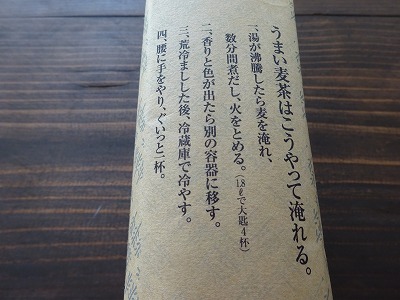 うまい麦茶はこうやって淹れる。
一、湯が沸騰したら麦を淹れ、
数分間煮だし、火をとめる。（1.8ℓで大匙4杯）
二、香りと色が出たら別の容器に移す。
三、荒冷ましした後、冷蔵庫で冷やす。
四、腰に手をやり、ぐいっと一杯。